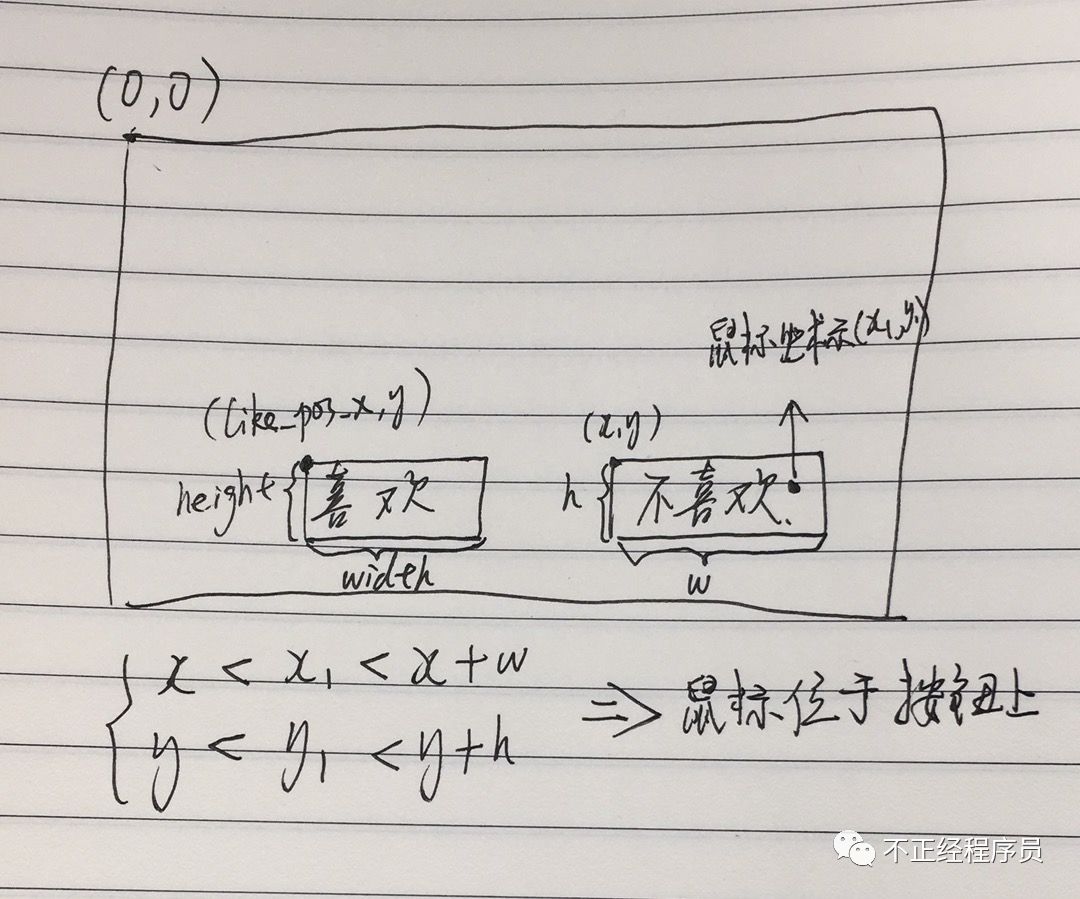 (0,0)
鼠标坐标(x₁,y₁)
(like_pos_x,y)
(x,y)
height
喜欢
h
不喜欢
width
w
x < x₁ < x+w
y < y₁ < y+h
=> 鼠标位于按钮上
不正经程序员